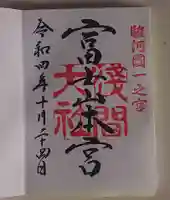 駿河國一之宮
富士山本宮
淺間大社
令和四年十月二十四日